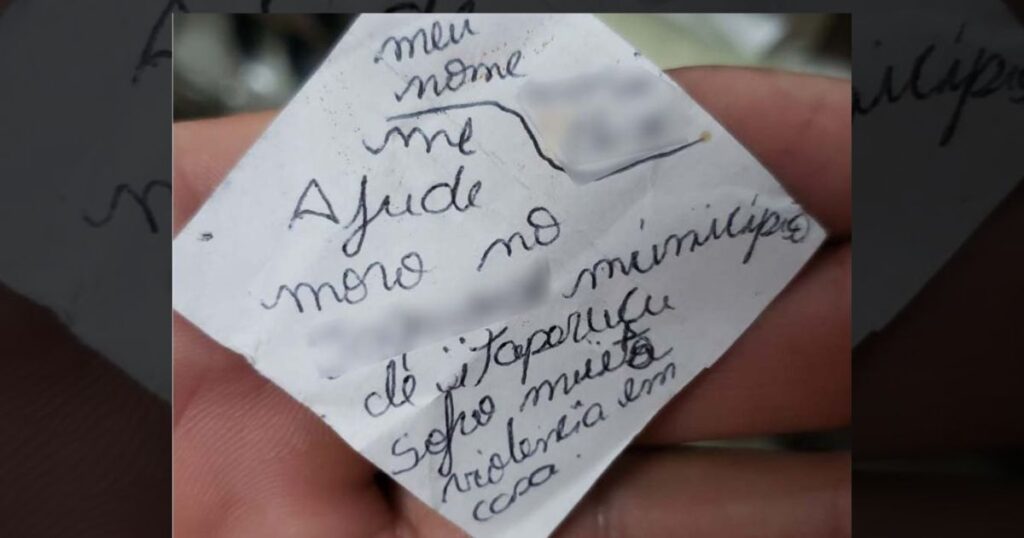 meu
nome
me
Ajude
moro no
município
de itaparucu
sofro muito
violencia em
casa.